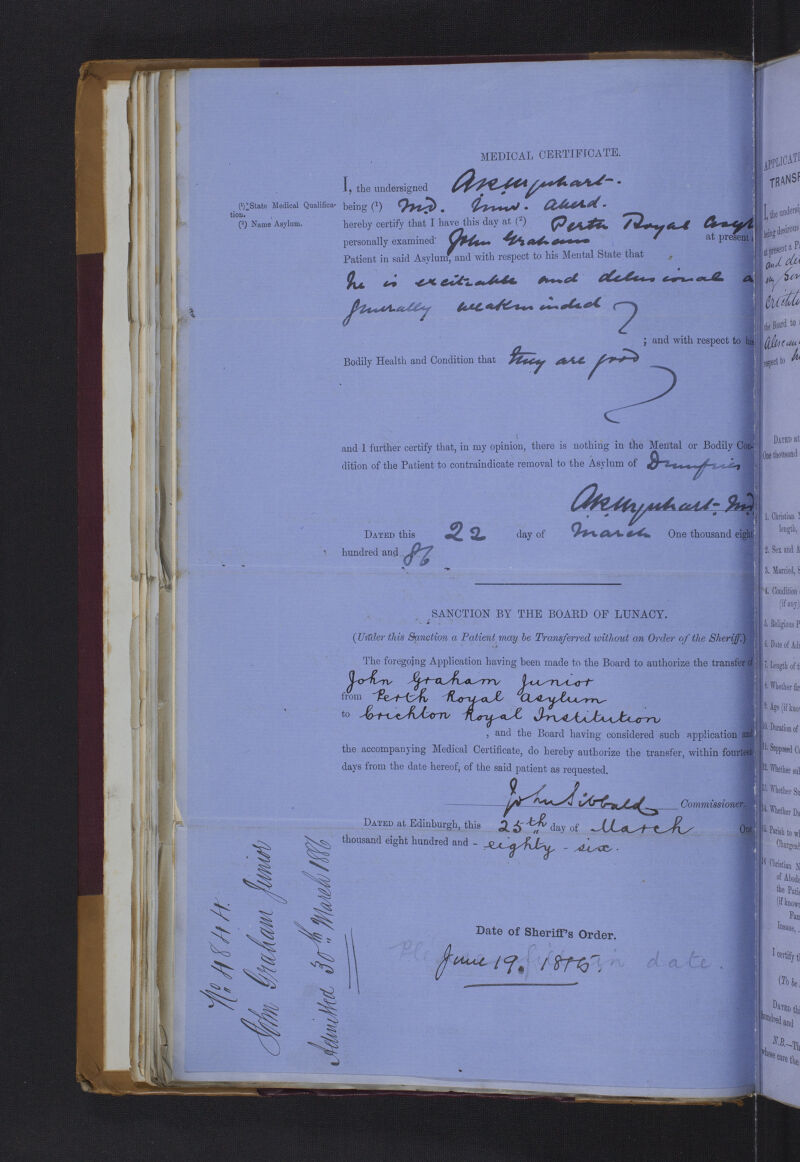 MEDICAL CERTIFICATE.
I, the undersigned A R Urquhart.
(¹) State Medical Qualifica-
tion.
(²) Name Asylum.
being (¹) M.D. Univ. Aberd.
hereby certify that I have this day at (²) Perth Royal Asyl
personally examined John Graham at present
Patient in said Asylum, and with respect to his Mental State that
he is excitable and delusional a
generally weakminded
; and with respect to his
Bodily Health and Condition that they are good
and I further certify that, in my opinion, there is nothing in the Mental or Bodily Con-
dition of the Patient to contraindicate removal to the Asylum of Dumfries
A R Urquhart. M.D.
DATED this 22 day of March One thousand eight
hundred and 86
SANCTION BY THE BOARD OF LUNACY.
(Under this Sanction a Patient may be Transferred without an Order of the Sheriff.)
The foregoing Application having been made to the Board to authorize the transfer of
John Graham Junior
from Perth Royal Asylum
to Crichton Royal Institution
, and the Board having considered such application and
the accompanying Medical Certificate, do hereby authorize the transfer, within fourteen
days from the date hereof, of the said patient as requested.
John Sibbald Commissioner.
DATED at Edinburgh, this 25th day of March One
thousand eight hundred and - eighty - six.
Date of Sheriff's Order.
in date.
June 19. 18
No 4844.
John Graham Junior
Admitted 30th March 1886
APPLICATI
TRANSF
I, the undersi
being desirous
at present a P
and
the Board to
respect to
DATED at
One thousand
1. Christian N
length,
2. Sex and A
3. Married, S
4. Condition
(if any)
5. Religious P
6. Date of Ad
7. Length of t
8. Whether fir
9. Age (if kno
10. Duration of
11. Supposed C
12. Whether
13. Whether Su
14. Whether Da
15. Parish to wh
Chargeab
16. Christian N
of Abode
the Pati
(if known
Fam
Insane,
I certify t
(To be
DATED thi
hundred and
N.B.—Th
whose care the